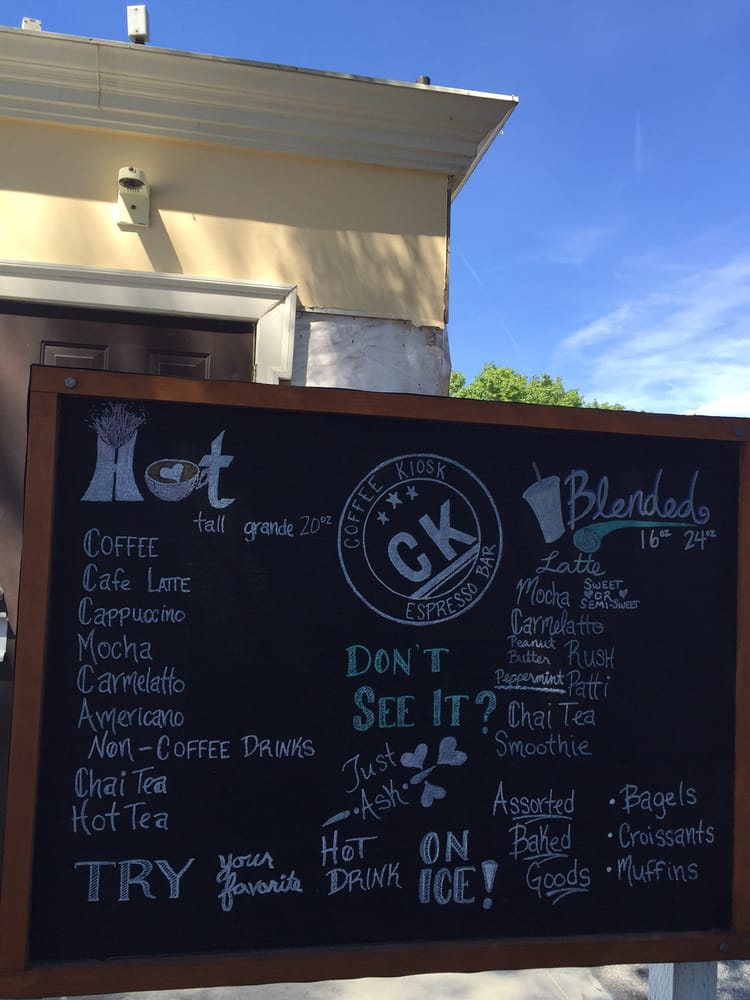 Hot
tall grande 20oz
COFFEE
Cafe LATTE
Cappuccino
Mocha
Carmelatto
Americano
NON-COFFEE DRINKS
Chai Tea
Hot Tea
COFFEE KIOSK
CK
ESPRESSO BAR
DON'T
SEE IT?
Just
Ask
Blended
16oz 24oz
Latte
Mocha SWEET OR SEMI-SWEET
Carmelatto
Peanut Butter RUSH
Peppermint Patti
Chai Tea
Smoothie
Assorted
Baked
Goods
• Bagels
• Croissants
• Muffins
TRY your favorite HOT DRINK ON ICE!